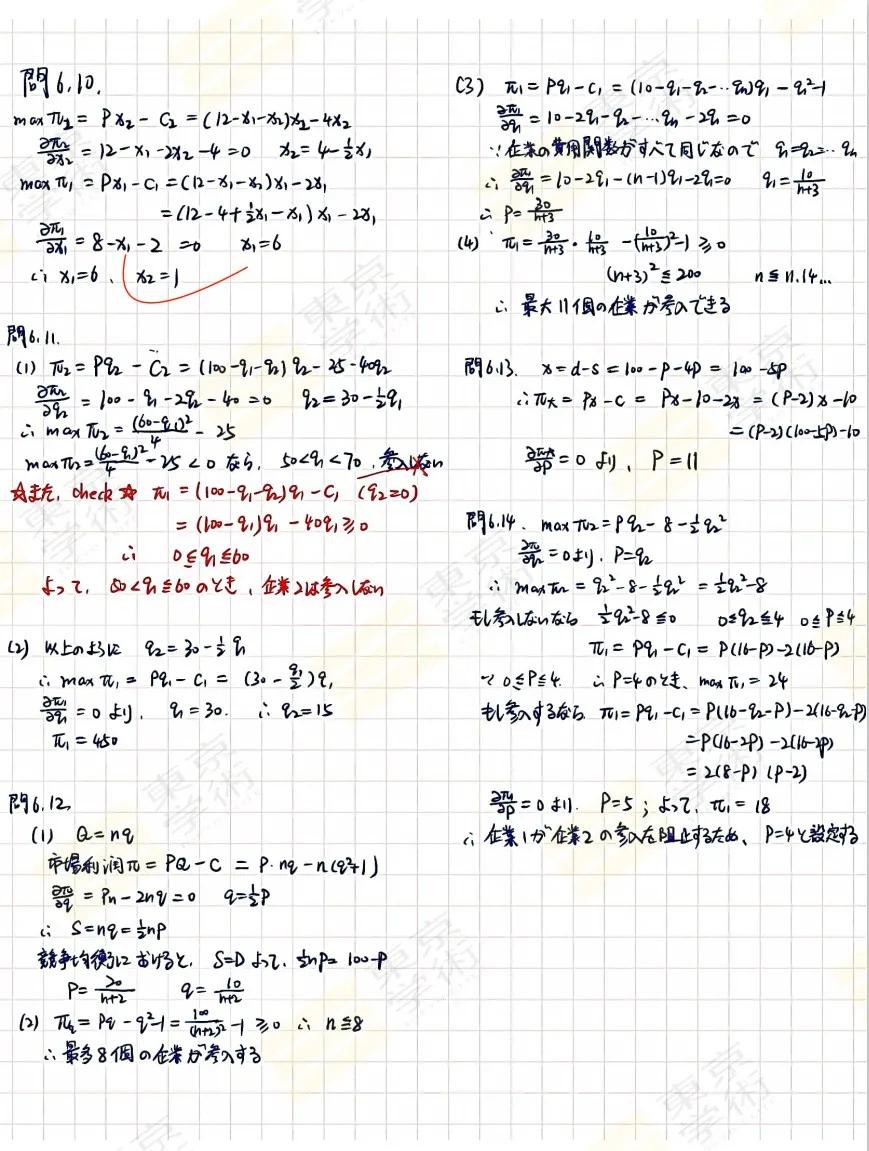 問6.10.
max π₂ = Px₂ - C₂ = (12-x₁-x₂)x₂-4x₂
∂π₂/∂x₂ = 12-x₁-2x₂-4=0 x₂=4-½x₁
max π₁ = Px₁-C₁ = (12-x₁-x₂)x₁-2x₁
= (12-4+½x₁-x₁)x₁-2x₁
∂π₁/∂x₁ = 8-x₁-2 =0 x₁=6
∴ x₁=6、x₂=1
問6.11.
(1) π₂ = Pq₂ - C₂ = (100-q₁-q₂)q₂-25-40q₂
∂π₂/∂q₂ = 100-q₁-2q₂-40=0 q₂=30-½q₁
∴ max π₂ = (60-q₁)²/4 - 25
max π₂ = (60-q₁)²/4 -25<0 なら, 50<q₁<70, 参入しない
☆また, check☆ π₁ = (100-q₁-q₂)q₁-C₁ (q₂=0)
= (100-q₁)q₁-40q₁≧0
∴ 0≦q₁≦60
よって, 50<q₁≦60のとき, 企業2は参入しない
(2) 以上のように q₂=30-½q₁
∴ max π₁ = Pq₁-C₁ = (30-q₁/2)q₁
∂π₁/∂q₁ = 0より, q₁=30. ∴ q₂=15
π₁=450
問6.12.
(1) Q=nq
市場利润π=PQ-C = P·nq-n(q²+1)
∂π/∂q = Pn-2nq=0 q=½P
∴ S=nq=½nP
競争均衡における と, S=D よって, ½nP=100-P
P=20/n+2 q=10/n+2
(2) π_q=Pq-q²-1=100/(n+2)²-1≧0 ∴ n≦8
∴ 最多8個の企業が参入する
(3) π₁=Pq₁-C₁=(10-q₁-q₂-…qₙ)q₁-q₁²-1
∂π₁/∂q₁=10-2q₁-q₂-…qₙ-2q₁=0
∵企業の費用関数がすべて同じなので q₁=q₂=…qₙ
∴ ∂π₁/∂q₁=10-2q₁-(n-1)q₁-2q₁=0 q₁=10/n+3
∴ P=30/n+3
(4) π₁=30/n+3·10/n+3-(10/n+3)²-1≧0
(n+3)²≦200 n≦11.14…
∴ 最大11個の企業が参入できる
問6.13. x=d-s=100-P-4P=100-5P
∴π大=Px-C=Px-10-2x=(P-2)x-10
=(P-2)(100-5P)-10
∂π大/∂P=0より, P=11
問6.14. max π₂=Pq₂-8-½q₂²
∂π₂/∂q₂=0より, P=q₂
∴ max π₂=q₂²-8-½q₂²=½q₂²-8
もし参入しないなら ½q₂²-8≦0 0≦q₂≦4 0≦P≦4
π₁=Pq₁-C₁=P(16-P)-2(16-P)
∵0≦P≦4. ∴P=4のとき, max π₁=24
もし参入するなら π₁=Pq₁-C₁=P(16-q₂-P)-2(16-q₂-P)
=P(16-2P)-2(16-2P)
=2(8-P)(P-2)
∂π₁/∂P=0より. P=5; よって, π₁=18
∴ 企業1が企業2の参入を阻止するため、P=4と設定する
東京学術